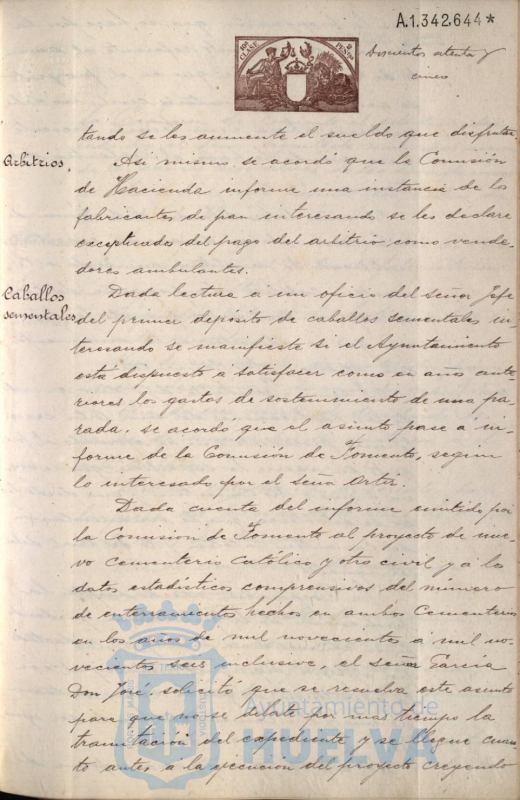 A.1.342.644*
10ª CLASE
2 PESETAS
Doscientos ochenta y
cinco
tando se les aumente el sueldo que disfrutan.
Arbitrios, Asi mismo se acordó que la Comisión
de Hacienda informe una instancia de los
fabricantes de pan interesando se les declare
exceptuados del pago del arbitrio como vende-
dores ambulantes.
Caballos Dada lectura a un oficio del señor Jefe
sementales del primer depósito de caballos sementales in-
teresando se manifieste si el Ayuntamiento
está dispuesto á satisfacer como en años ante-
riores los gastos de sostenimiento de una pa-
rada, se acordó que el asunto pase a in-
forme de la Comisión de Fomento, segun
lo interesado por el señor
Dada cuenta del informe emitido por
la Comisión de Fomento al proyecto de nue-
vo cementerio católico y otro civil y á los
datos estadísticos comprensivos del número
de enterramientos hechos en ambos Cementerios
en los años de mil novecientos á mil no-
vecientos seis inclusive, el señor García
Don José, solicitó que se resuelva este asunto
para que no se dilate por mas tiempo la
tramitación del expediente y se llegue cuan-
to antes á la ejecución del proyecto creyendo
Ayuntamiento de
HUELVA